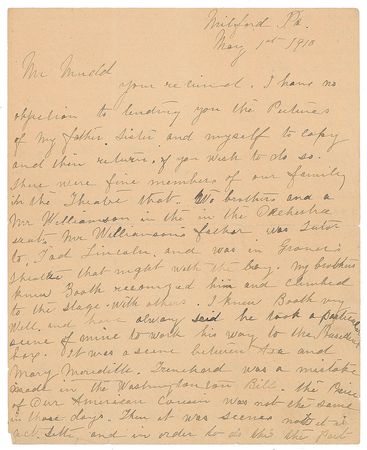 Milford Pa.
May 1st 1910
Mr Mudd
your received. I have no
objection to lending you the Pictures
of my father Sister and myself to copy
and then return, if you wish to do so.
There were five members of our family
in the Theatre that. Two brothers and a
Mr Williamson in the in the Orchestra
seats. Mr Williamson's father was Tutor
to Tad Lincoln, and was in Grover's
theatre that night with the boy. My brothers
knew Booth recognized him and climbed
to the stage with others. I knew Booth very
Well, and have always said he took a particular
scene of mine to work his way to the President's
box. It was a scene between Asa and
Mary Meredith. Trenchard was a mistake
made in the Washington Bill. the Piece
of Our American Cousin was not the same
in those days. Then it was scenes not it is
act. Sett, and in order to do this the part